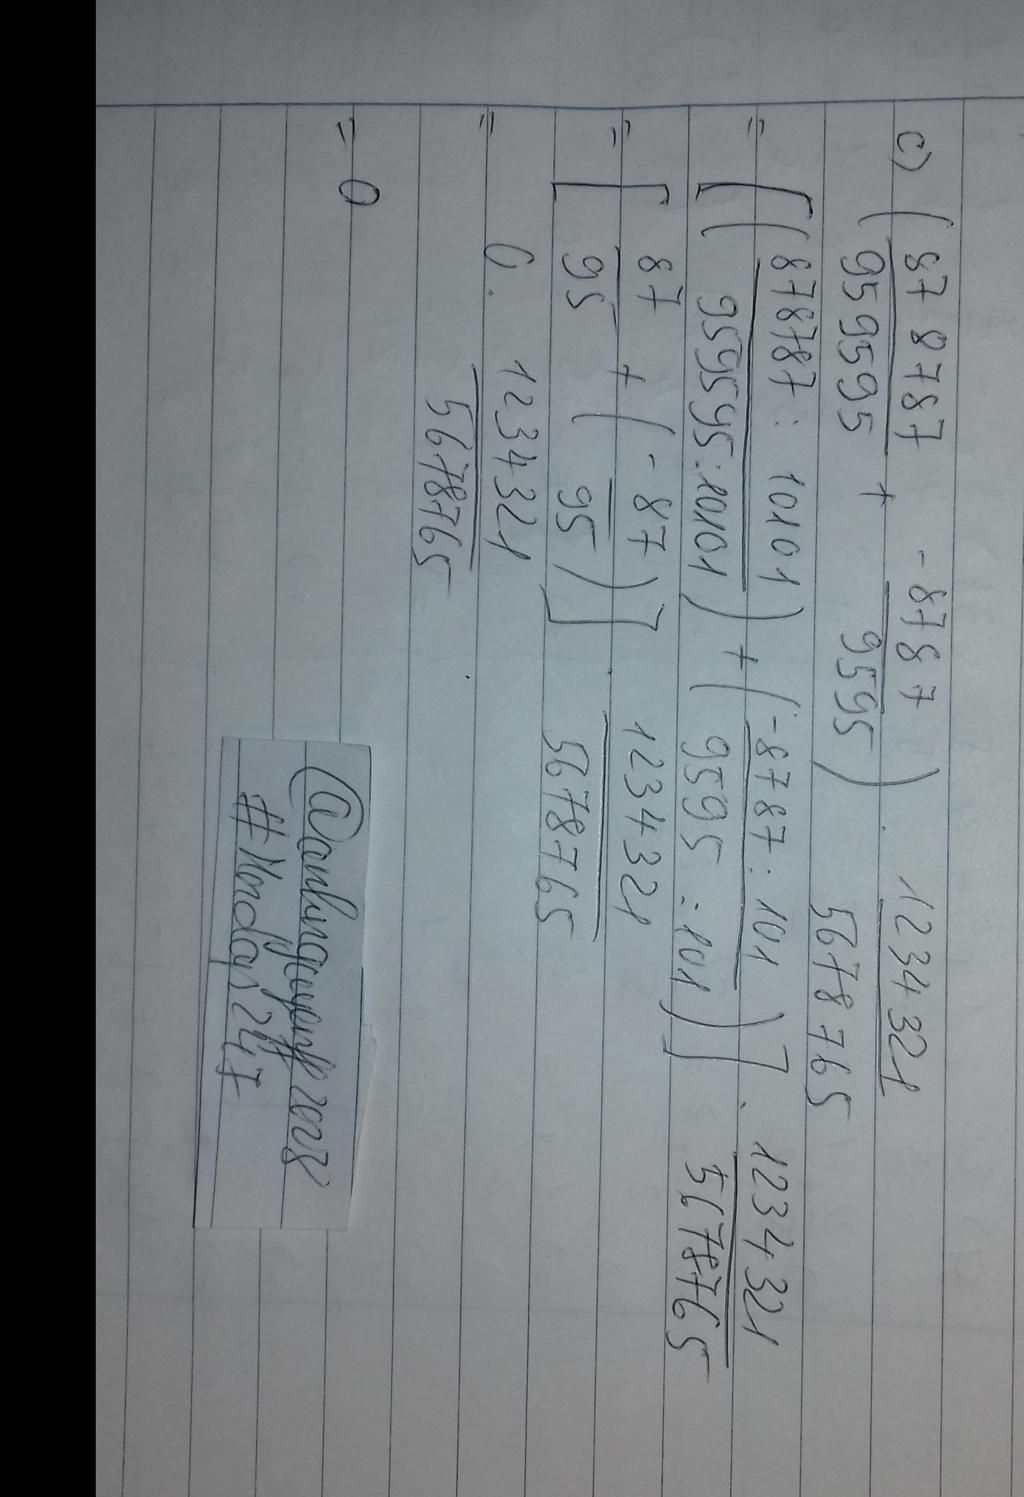 c) ( 87 8787 / 95 9595 + -8787 / 9595 ) . 1234321 / 5678765
= [ ( 878787 : 10101 / 959595 : 10101 ) + ( -8787 : 101 / 9595 : 101 ) ] . 1234321 / 5678765
= [ 87 / 95 + ( -87 / 95 ) ] . 1234321 / 5678765
= 0 . 1234321 / 5678765
= 0
#Monday247